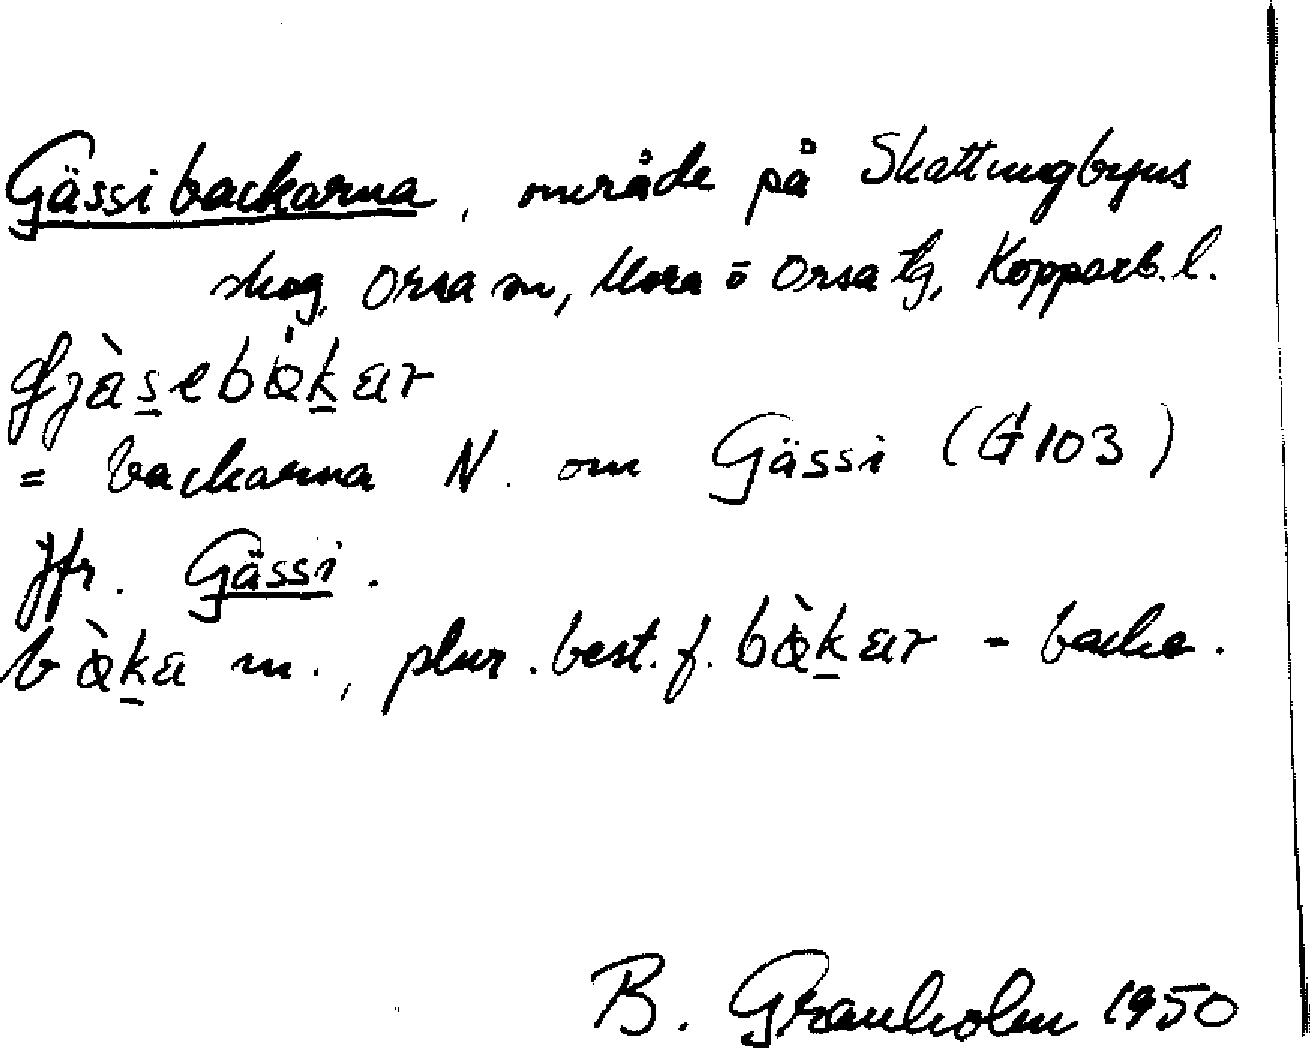 Gässibackarna, område på Skattungbyns
skog, Orsa sn, Mora o Orsa tg, Kopparb. l.
gjàs̲ebək̲ar
= backarna N. om Gässi (G 103)
Jfr. Gässi.
bə̀k̲a m., plur. best. f. bə̀k̲ar - backe.
B. Granholm 1950